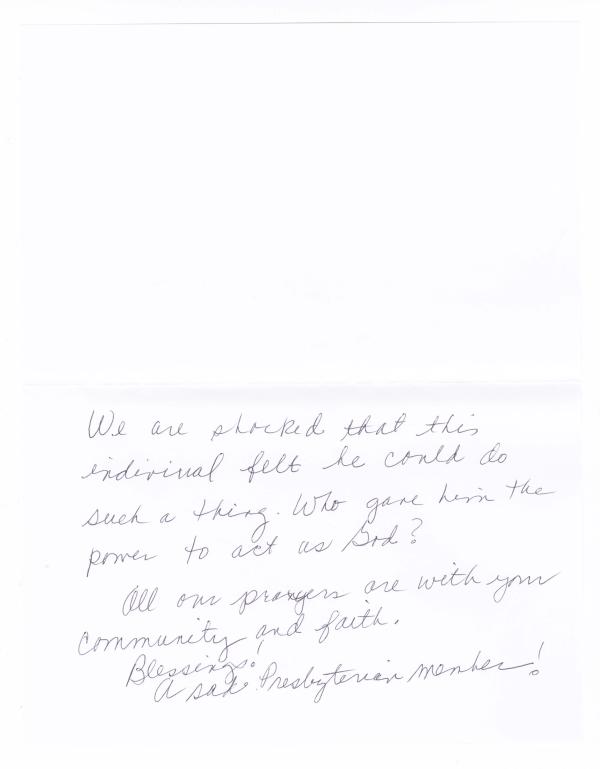 We are shocked that this
indivinal felt he could do
such a thing. Who gave him the
power to act as God?
All our prayers are with your
community and faith.
Blessings!
A sad Presbyterian member!